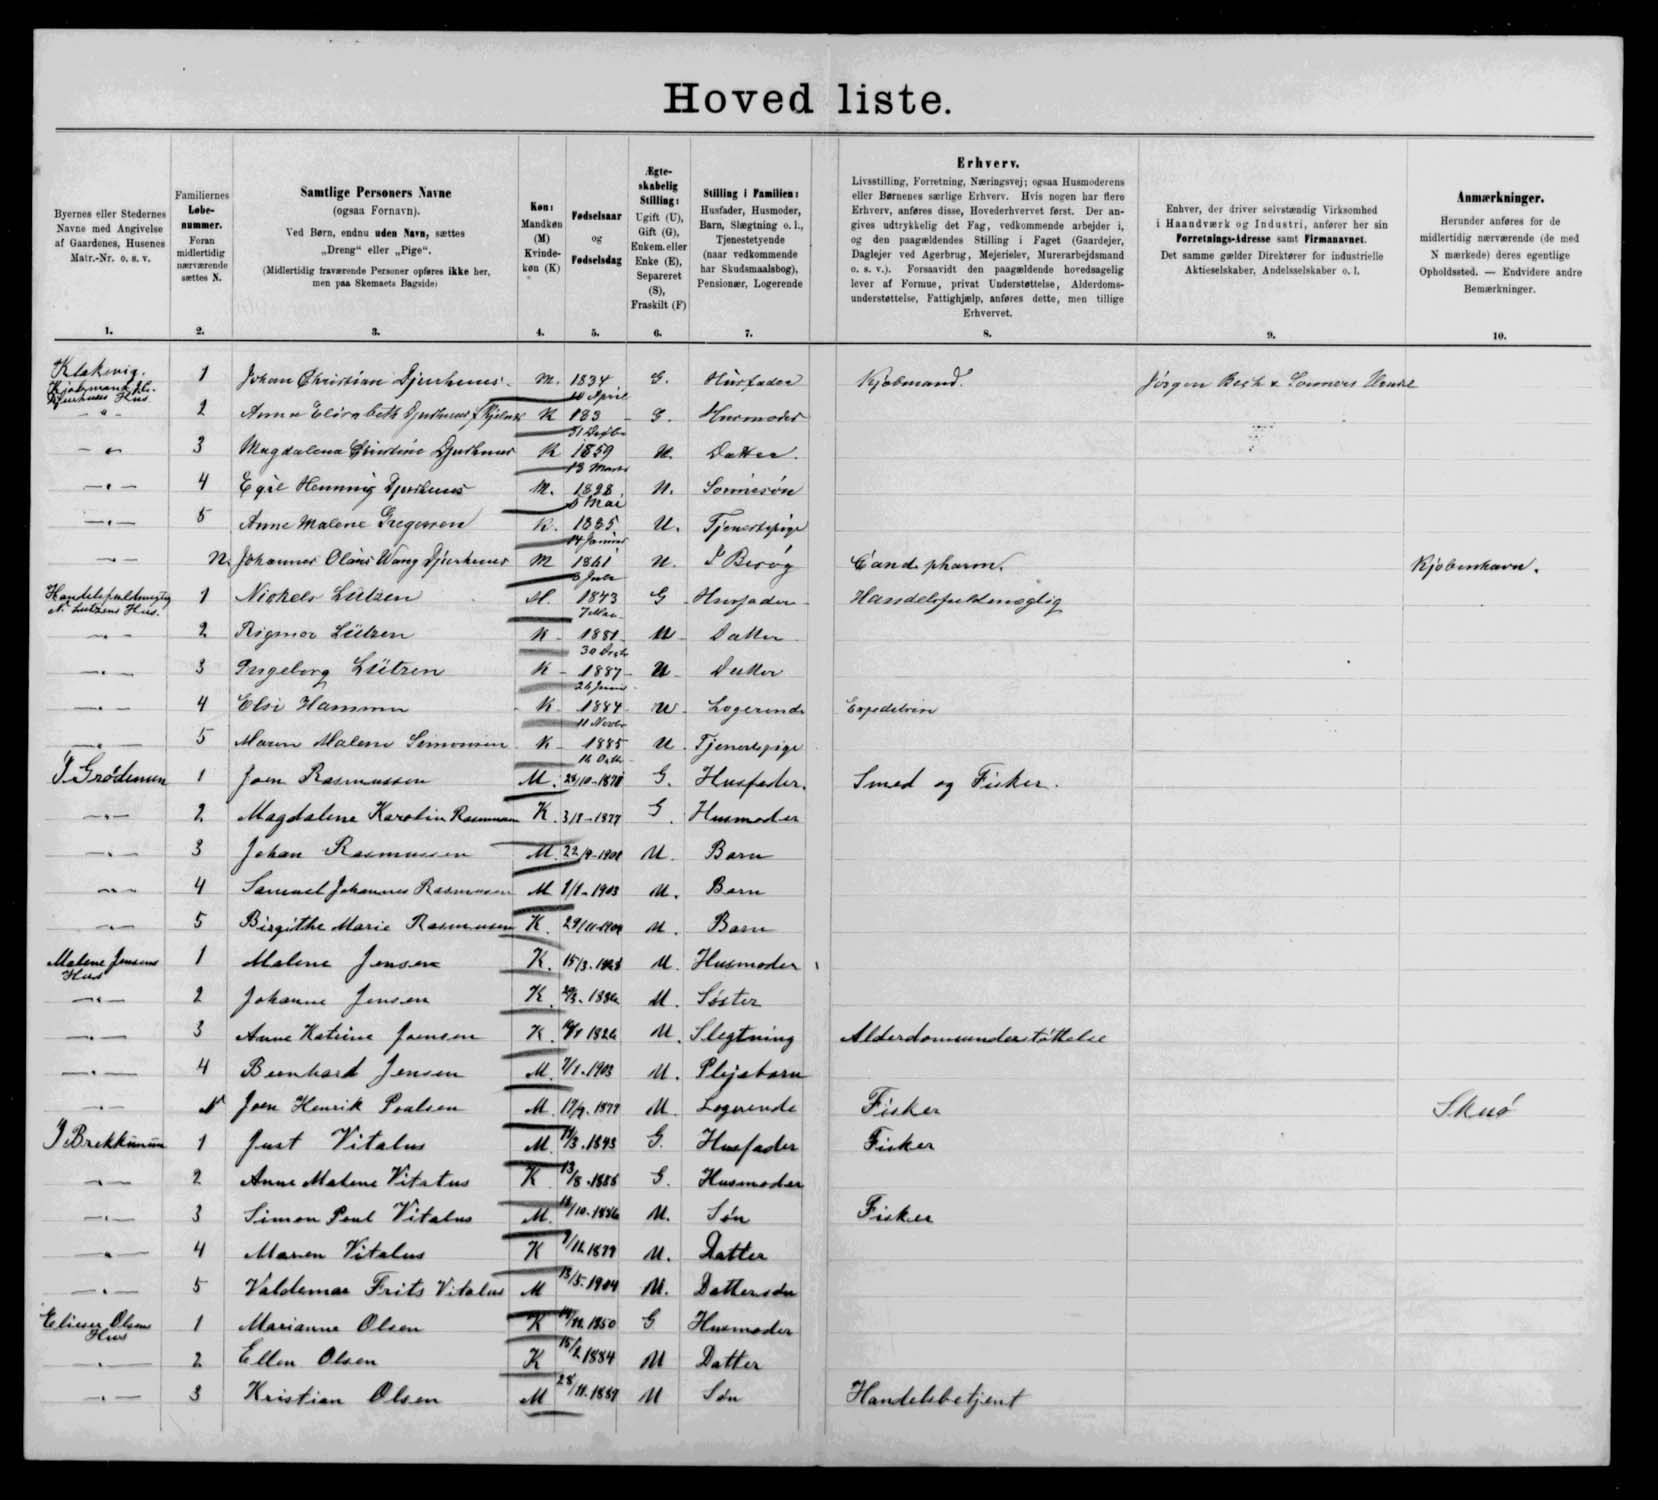 Hoved liste.
Byernes eller Stedernes Navne med Angivelse af Gaardenes, Husenes Matr.-Nr. o. s. v.
Familiernes Løbe-nummer. Foran midlertidig nærværende sættes N.
Samtlige Personers Navne
(ogsaa Fornavn).
Ved Børn, endnu uden Navn, sættes „Dreng“ eller „Pige“.
(Midlertidig fraværende Personer opføres ikke her, men paa Skemaets Bagside)
Køn: Mandkøn (M) Kvinde-køn (K)
Fødselsaar og Fødselsdag
Ægte-skabelig Stilling: Ugift (U), Gift (G), Enkem. eller Enke (E), Separeret (S), Fraskilt (F)
Stilling i Familien: Husfader, Husmoder, Barn, Slægtning o. l., Tjenestetyende (naar vedkommende har Skudsmaalsbog), Pensionær, Logerende
Erhverv.
Livsstilling, Forretning, Næringsvej; ogsaa Husmoderens eller Børnenes særlige Erhverv. Hvis nogen har flere Erhverv, anføres disse, Hovederhvervet først. Der angives udtrykkelig det Fag, vedkommende arbejder i, og den paagældendes Stilling i Faget (Gaardejer, Daglejer ved Agerbrug, Mejerielev, Murerarbejdsmand o. s. v.). Forsaavidt den paagældende hovedsagelig lever af Formue, privat Understøttelse, Alderdoms-understøttelse, Fattighjælp, anføres dette, men tillige Erhvervet.
Enhver, der driver selvstændig Virksomhed i Haandværk og Industri, anfører her sin Forretnings-Adresse samt Firmanavnet. Det samme gælder Direktører for industrielle Aktieselskaber, Andelsselskaber o. l.
Anmærkninger.
Herunder anføres for de midlertidig nærværende (de med N mærkede) deres egentlige Opholdssted. — Endvidere andre Bemærkninger.
1. 2. 3. 4. 5. 6. 7. 8. 9. 10.
Klaksvig. Hus 1 Johan Christian Djurhuus M. 1834 10 April G. Husfader Kjøbmand. Jørgen Bech & Sønners
— " — 2 Anna Elisabeth Djurhuus K 183 G. Husmoder
— " — 3 Magdalena Christine Djurhuus K 1859 13 Marts U. Datter.
— " — 4 Egil Henning Djurhuus M. 1898 5 Mai U. Sønnesøn
— " — 5 Anne Malene Gregersen K. 1885 14 Januar U. Tjenestepige
— " — N. Johannes Olaus Wang Djurhuus M 1861 U. I Besøg Cand. pharm. Kjøbenhavn.
Handelsfuldmægtig N. Lützens Hus. 1 Nickels Lützen M. 1843 7 G Husfader Handelsfuldmægtig
— " — 2 Rigmor Lützen K 1881 30 U Datter
— " — 3 Ingeborg Lützen K 1887 26 U Datter
— " — 4 Elsi Hammer K 1884 11 Novbr U Logerende
— " — 5 Maren Malene Simonsen K 1885 16 U. Tjenestepige
I Grødenum 1 Joen Rasmussen M. 28/10-1878 G. Husfader. Smed og Fisker.
— " — 2 Magdalene Karolin Rasmussen K. 3/8-1877 G. Husmoder
— " — 3 Johan Rasmussen M. 22/9-1901 U. Barn
— " — 4 Samuel Johannes Rasmussen M 1/1-1903 U. Barn
— " — 5 Birgithe Marie Rasmussen K. 29/11 U. Barn
Malene Jensens Hus 1 Malene Jensen K. 15/3 U. Husmoder
— " — 2 Johanne Jensen K. U. Søster
— " — 3 Anne Katrine Joensen K. 1826 U. Slegtning Alderdomsunderstøttelse
— " — 4 Bernhard Jensen M. 7/1-1903 U. Plejebarn
— " — N Joen Henrik Poulsen M. 17/9-1877 U. Logerende Fisker Skuø
I Brekkunum 1 Just Vitalus M. 1843 G. Husfader Fisker
— " — 2 Anne Malene Vitalus K 13/8 G. Husmoder
— " — 3 Simon Poul Vitalus M. 18/10-1886 U. Søn Fisker
— " — 4 Maren Vitalus K 1879 U. Datter
— " — 5 Valdemar Frits Vitalus M 13/5-1904 U. Dattersøn
Elieser Olsens Hus 1 Marianne Olsen K 1850 G Husmoder
— " — 2 Ellen Olsen K 15/2 1884 U Datter
— " — 3 Kristian Olsen M 28/11-1889 U Søn Handelsbetjent